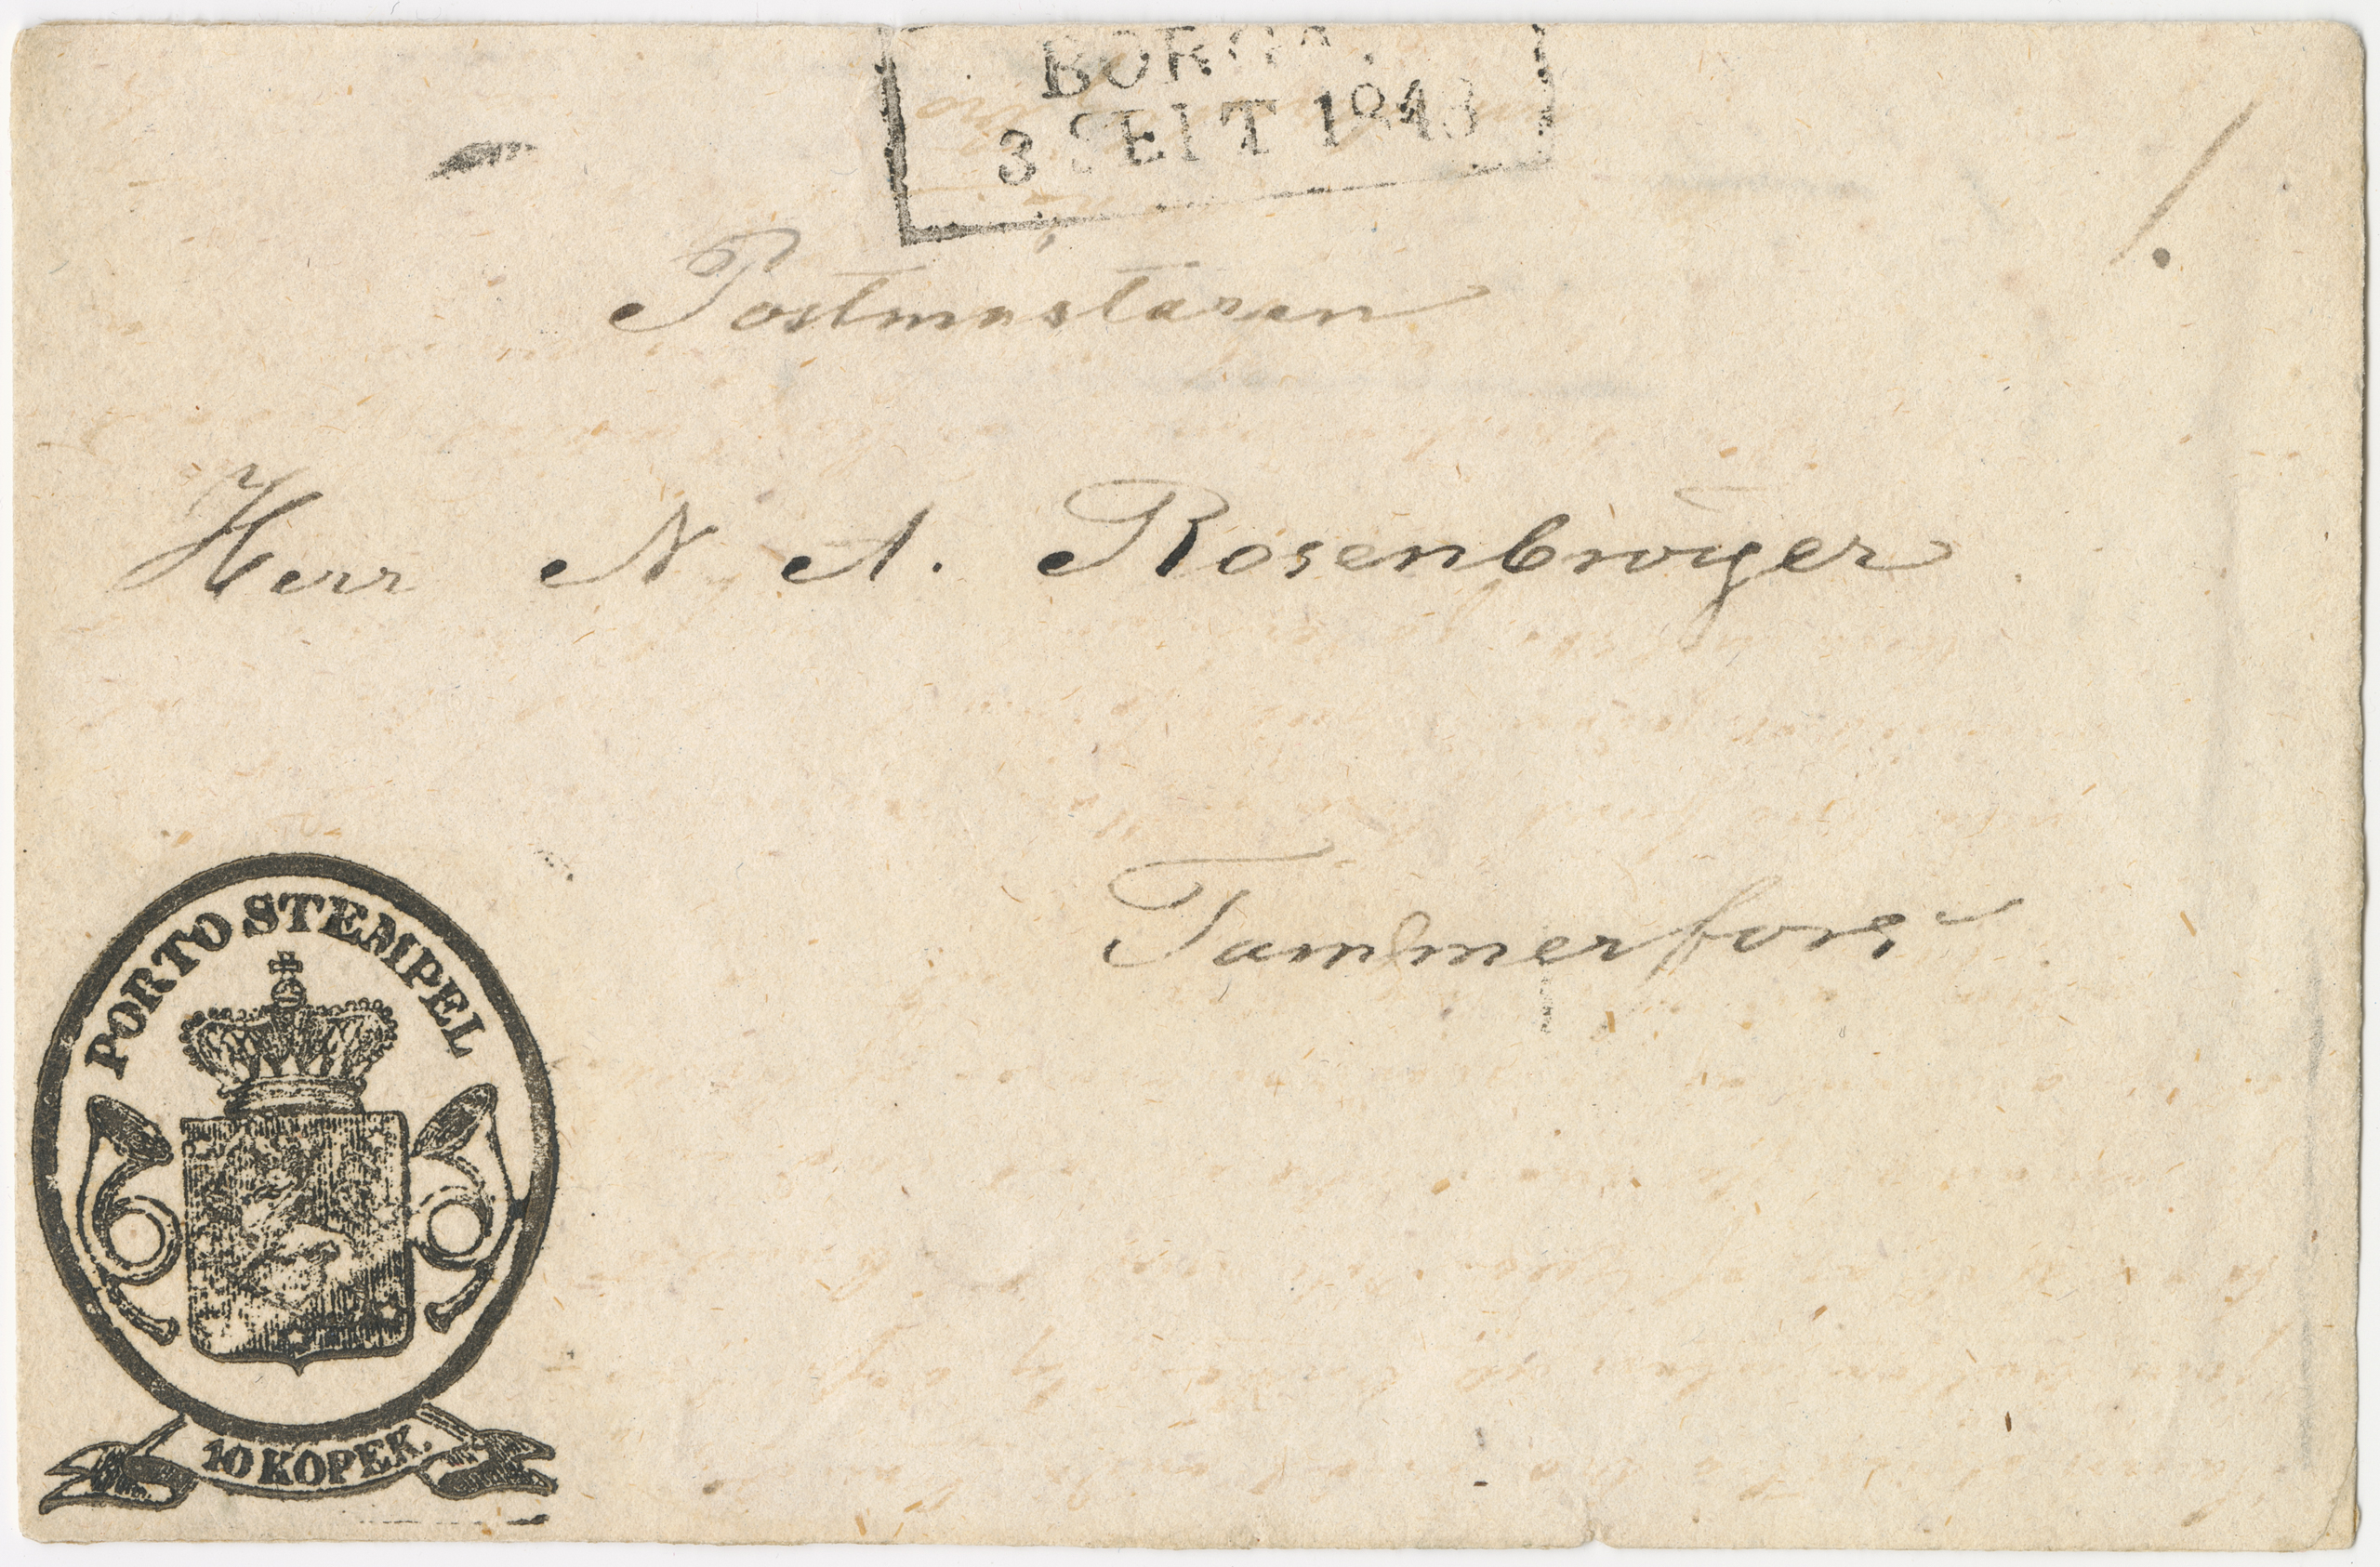 BORGÅ.
3 SEPT 1848
Postmästaren
Herr N A. Rosenbröijer
Tammerfors
PORTO STEMPEL
10 KOPEK.